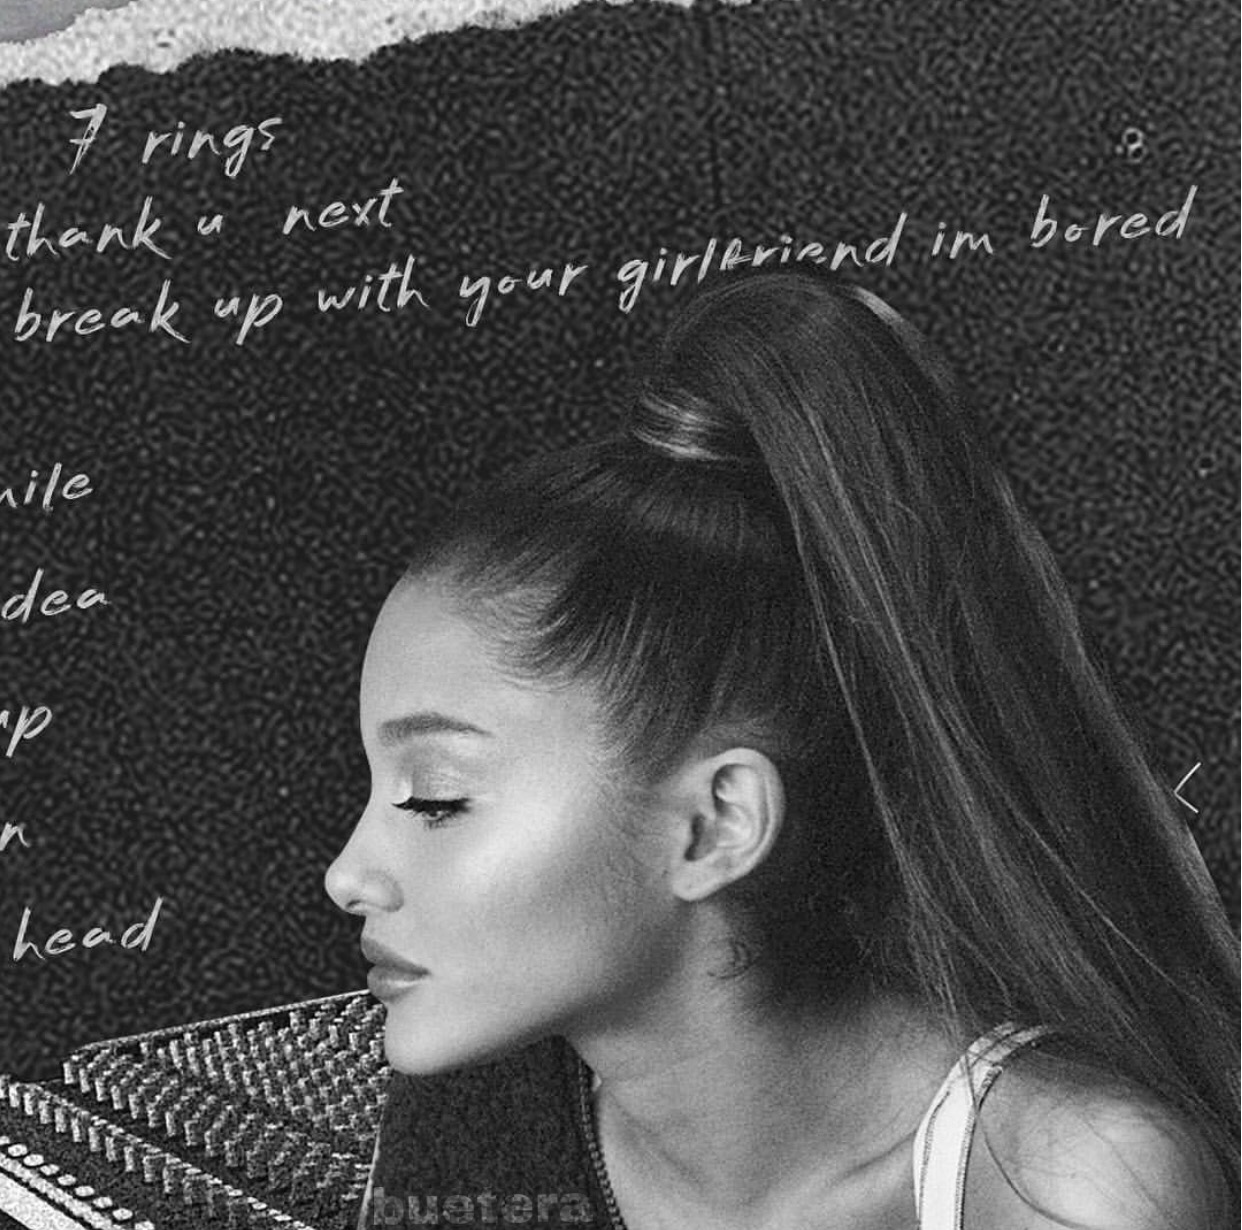 7 rings
thank u next
break up with your girlfriend im bored
head
buetera